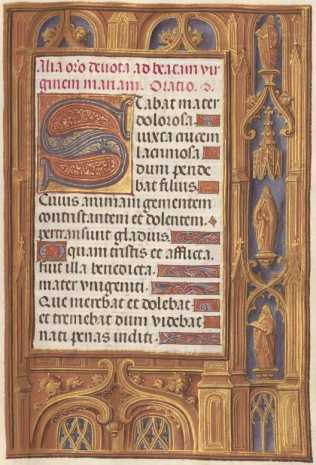 Alia oro deuota ad beatam vir
ginem mariam. Oratio.
Stabat mater
dolorosa
iuxta crucem
lacrimosa
dum pende
bat filius.
Cuius animam gementem
contristantem et dolentem.
pertransiuit gladius.
O quam tristis et afflicta.
fuit illa benedicta.
mater vnigeniti.
Que merebat et dolebat
et tremebat dum videbat
nati penas incliti.